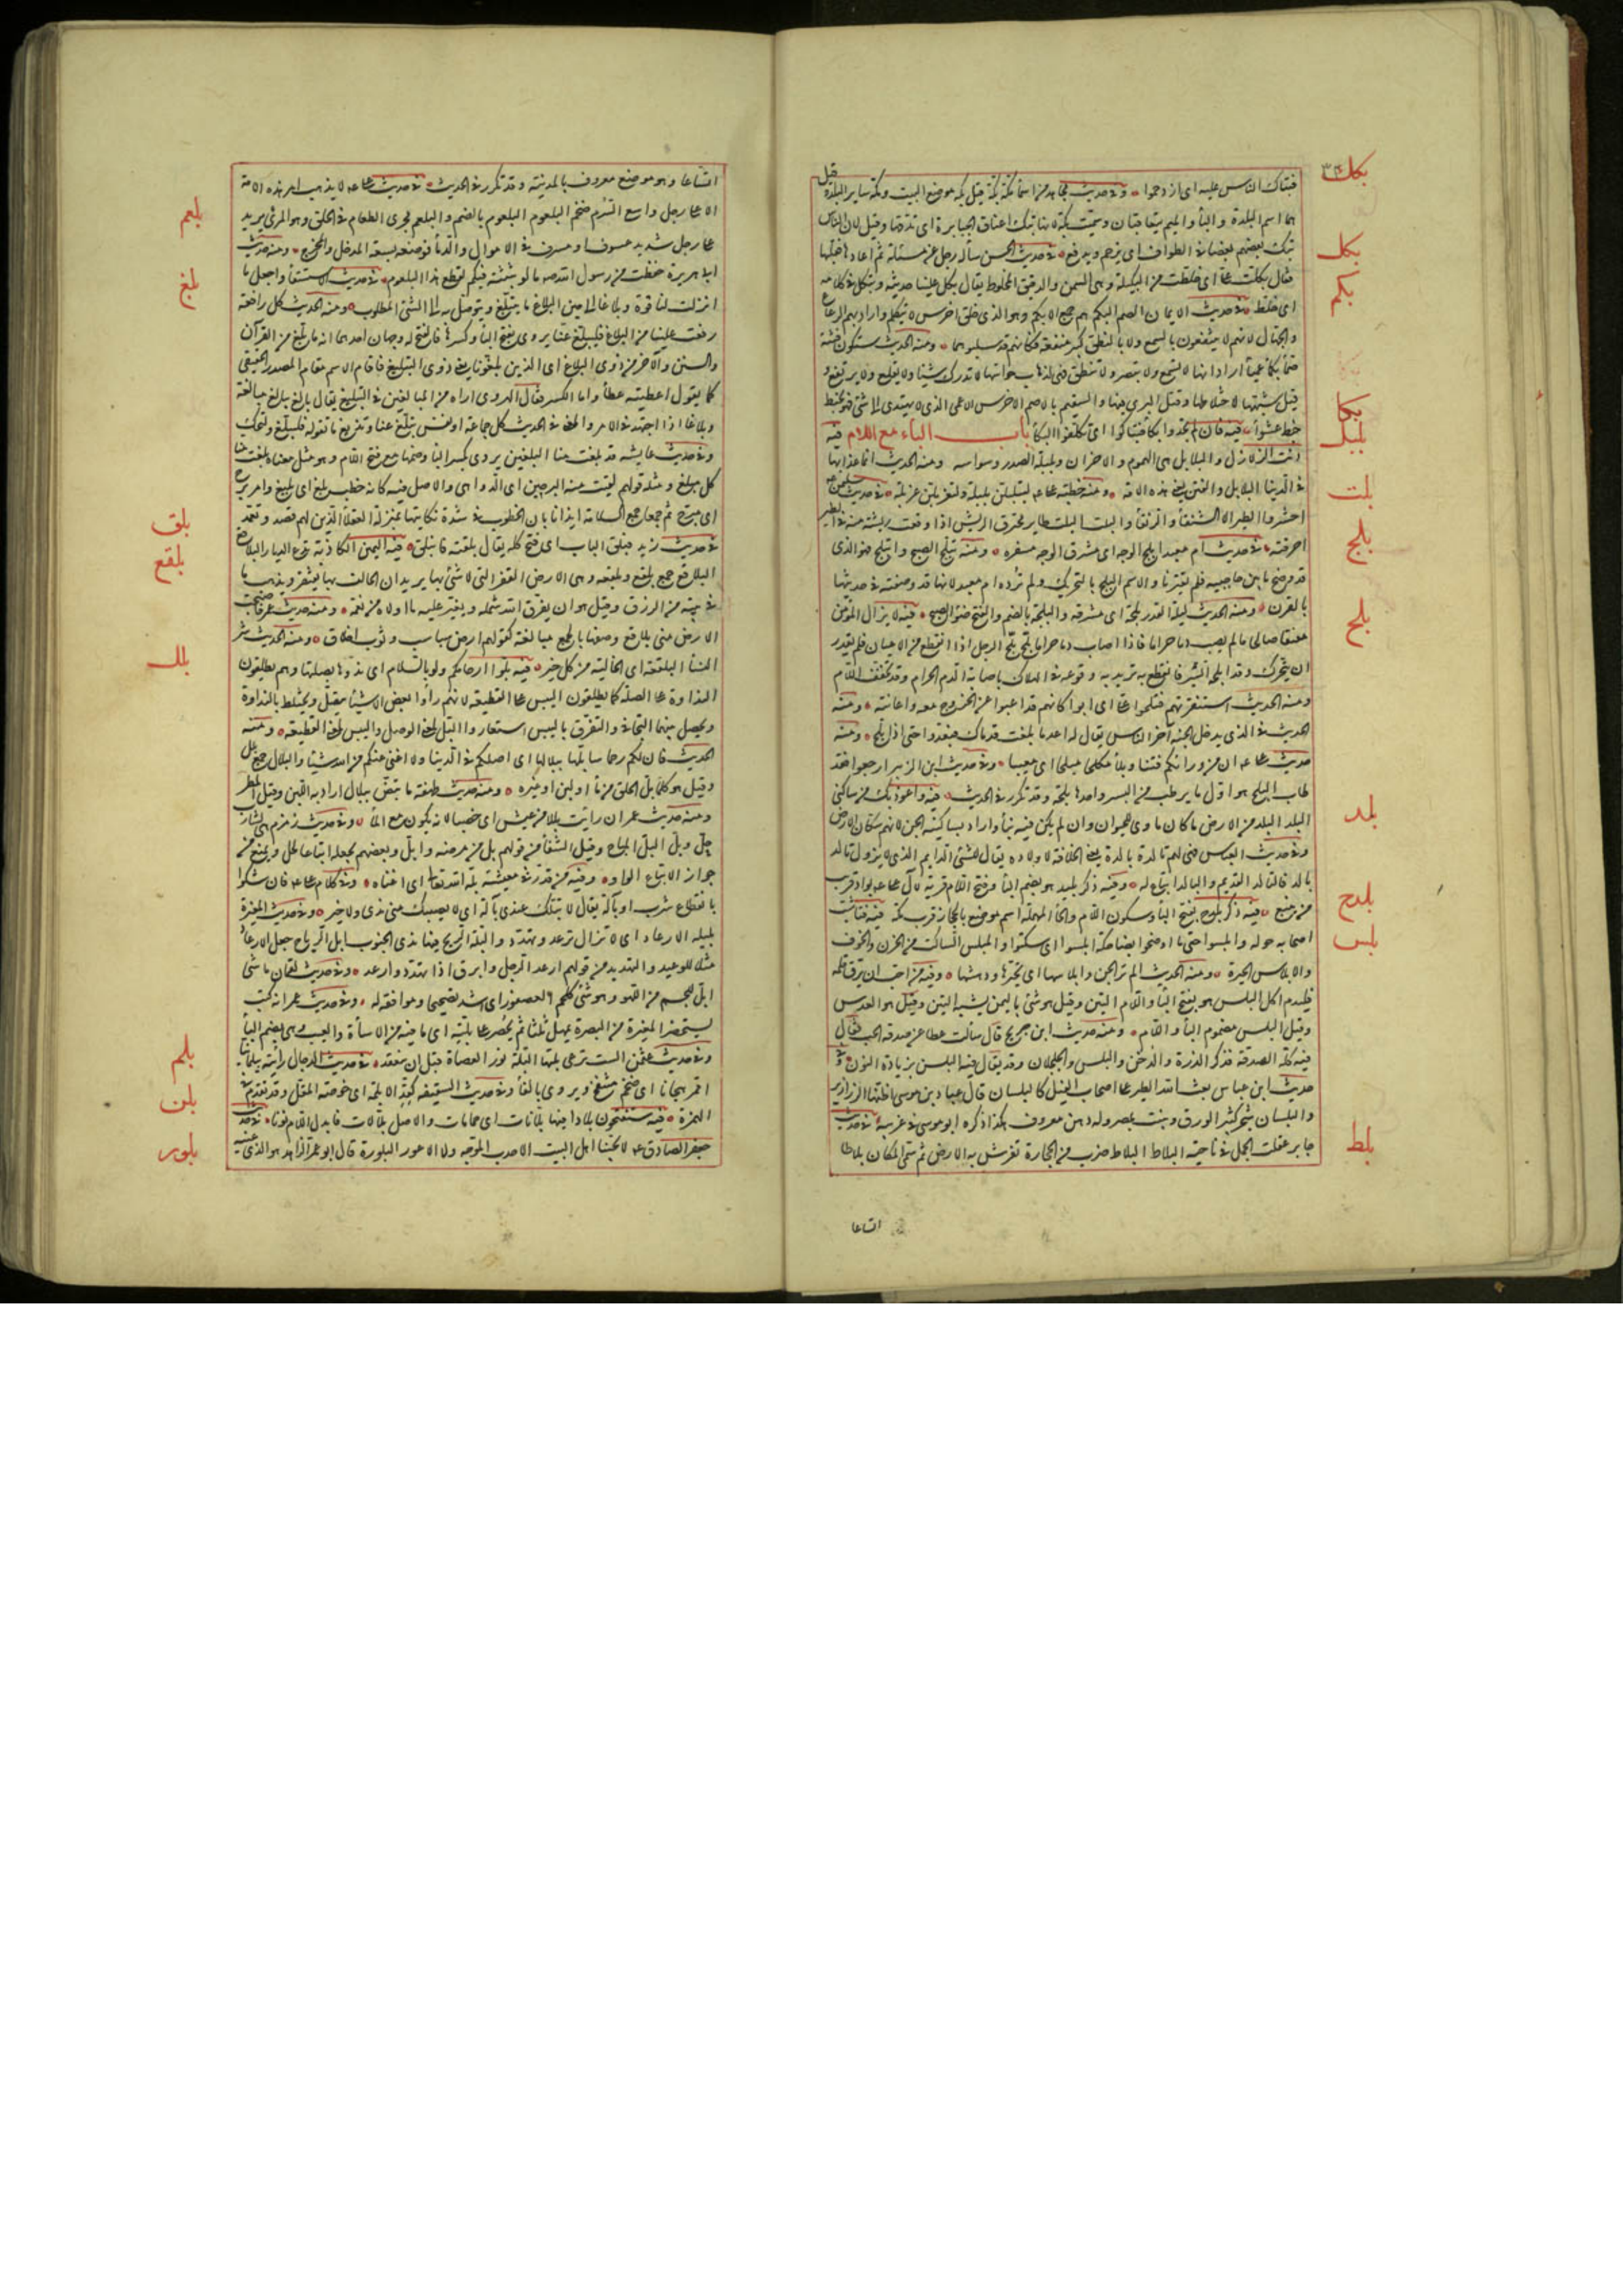 فتباك الناس عليه اى ازدحموا ٥ وفى حديث مجاهد من اسماء مكة بكة قيل بكة موضع البيت ومكة سائر البلدة وقيل
هما اسم البلدة والباء والميم يتعاقبان وسميت بكة لانها تبك اعناق الجبابرة اى تدقها وقيل لان الناس
يبك بعضهم بعضا فى الطواف اى يزحم ويدفع ٥ فى حديث الحسن ساله رجل عن مسئلة ثم اعادها فقلبها
فقال بكلت على اى خلطت من البكيلة وهى السمن والدقيق المخلوط يقال بكل علينا حديثه وتبكل فى كلامه
اى خلط ٥ فى حديث الايمان الصم البكم هم جمع الابكم وهو الذى خلق اخرس لا يتكلم واراد بهم الرعاع
والجهال لانهم لا ينتفعون بالسمع ولا بالنطق كبير منفعة فكانهم قد سلبوهما ٥ ومنه الحديث ستكون فتنة
صماء بكماء عمياء اراد انها لا تسمع ولا تبصر ولا تنطق فهى لذهاب حواسها لا تدرك شيئا ولا تقلع ولا ترتفع و
قيل شبهها لاختلاطها وقتل البرى فيها والسقيم بالاصم الاخرس الاعمى الذى لا يهتدى الى شئ فهو يخبط
خبط عشواء ٥ فيه فان لم تجدوا بكاء فتباكوا اى تكلفوا البكاء باب الباء مع اللام فيه
دنت الزلازل والبلابل هى الهموم والاحزان وبلبلة الصدر وسواسه ومنه الحديث انما عذابها
فى الدنيا البلابل والفتن يعنى هذه الامة ٥ ومنه خطبة على لتبلبلن بلبلة ولتغربلن غربلة ٥ فى حديث سليمن
احشروا الطير الا الشنقاء والرنقاء والبلت البلت طاير محترق الريش اذا وقعت ريشة منه فى الطير
احرقته ٥ فى حديث ام معبد ابلج الوجه اى مشرق الوجه مسفره ٥ ومنه تبلج الصبح وانبلج فهو الذى
قد وضح ما بين حاجبيه فلم يقترنا والاسم البلج بالتحريك ولم ترده ام معبد لانها قد وصفته فى حديثها
بالقرن ٥ ومنه الحديث ليلة القدر بلجة اى مشرقة والبلجة بالضم والفتح ضوء الصبح ٥ فيه لا يزال المؤمن
معنقا صالحا ما لم يصب دما حراما فاذا اصاب دما حراما بلح بلح الرجل اذا انقطع من الاعياء فلم يقدر
ان يتحرك وقد ابلحه السير فانقطع به يريد به وقوعه فى الهلاك باصابة الدم الحرام وقد تخفف اللام
ومنه الحديث استنفرتهم فبلحوا على اى ابوا كانهم قد اعيوا عن الخروج معه واعانته ٥ ومنه
الحديث فى الذى يدخل الجنة آخر الناس يقال له اعد ما بلغت قدماك فيعدو حتى اذا بلح ٥ ومنه
حديث على ان من ورائكم فتنا وبلاء مكلحا مبلحا اى معييا ٥ وفى حديث ابن الزبير ارجعوا فقد
طاب البلح هو اول ما يرطب من البسر واحدها بلحة وقد تكرر فى الحديث ٥ فيه واعوذ بك من ساكنى
البلد البلد من الارض ما كان ماوى للحيوان وان لم يكن فيه بناء واراد بساكنيه الجن لانهم سكان الارض
وفى حديث العباس فهى لهم تالدة بالدة يعنى الخلافة لاولاده يقال للشئ الدايم الذى لا يزول تالد
بالد فالتالد القديم والبالد اتباع له ٥ وفيه ذكر بليد هو بضم الباء وفتح اللام قرية لآل على بواد قريب
من ينبع ٥ فيه ذكر بلدح بفتح الباء وسكون اللام والحاء المهملة اسم موضع بالحجاز قرب مكة فيه فتأشب
اصحابه حوله وابلسوا حتى ما اوضحوا بضاحكة ابلسوا اى سكتوا والمبلس الساكت من الحزن والخوف
والابلاس الحيرة ٥ ومنه الحديث الم تر الجن وابلاسها اى تحيرها ودهشها ٥ وفيه من احب ان يرق قلبه
فليدم اكل البلس هو بفتح الباء واللام التين وقيل هو شئ باليمن يشبه التين وقيل هو العدس
وقيل البلس مضموم الباء واللام ٥ ومنه حديث ابن جريج قال سألت عطاء عن صدقة الحب فقال
فيه كله الصدقة فذكر الذرة والدخن والبلس والجلجلان وقد يقال فيه البلسن بزيادة النون ٥ وفى
حديث ابن عباس بعث الله الطير على اصحاب الفيل كالبلسان قال عباد بن موسى اظنها الزرازير
والبلسان شجر كثير الورق ينبت بمصر وله دهن معروف هكذا ذكره ابو موسى فى غريبه ٥ فى حديث
جابر عقلت الجمل فى ناحية البلاط البلاط ضرب من الحجارة تفرش به الارض ثم سمى المكان بلاطا
اتساعا
بكك
بكل
بكم
بكا
بلبل
بلت
بلج
بلح
بلد
بلدح
بلس
بلط
اتساعا وهو موضع معروف بالمدينة وقد تكرر فى الحديث ٥ فى حديث على لا يذهب امر هذه الامة
الا على رجل واسع السرم ضخم البلعوم البلعوم بالضم والبلعم مجرى الطعام فى الحلق وهو المرئ يريد
على رجل شديد عسوف او مسرف فى الاموال والدماء فوصفه بسعة المدخل والمخرج ٥ ومنه حديث
ابى هريرة حفظت من رسول الله صم ما لو بثثته فيكم لقطع هذا البلعوم ٥ فى حديث الاستسقاء واجعل ما
انزلت لنا قوة وبلاغا الى حين البلاغ ما يتبلغ ويتوصل به الى الشئ المطلوب ٥ ومنه الحديث كل رافعة
رفعت علينا من البلاغ فليبلغ عنا يروى بفتح الباء وكسرها فالفتح له وجهان احدهما انه ما بلغ من القرآن
والسنن والآخر من ذوى البلاغ اى الذين بلغونا يعنى ذوى التبليغ فاقام الاسم مقام المصدر الحقيقى
كما يقول اعطيته عطاء واما الكسر فقال الهروى اراه من المبالغين فى التبليغ يقال بالغ يبالغ مبالغة
وبلاغا اذا اجتهد فى الامر والمعنى فى الحديث كل جماعة او نفس تبلغ عنا وتذيع ما نقوله فليبلغ ولتحك
وفى حديث عايشة قد بلغت منا البلغين يروى بكسر الباء وضمها مع فتح اللام وهو مثل معناه بلغت منا
كل مبلغ ومثله قولهم لقيت منه البرحين اى الدواهى والاصل فيه كانه خطب بلغ اى بليغ وامر برح
اى مبرح ثم جمعا جمع السلامة ايذانا بان الخطوب فى شدة نكايتها بمنزلة العقلاء الذين لهم قصد وتعمد
فى حديث زيد فبلق الباب اى فتح كله يقال بلقته فانبلق ٥ فيه اليمين الكاذبة تدع الديار بلاقع
البلاقع جمع بلقع وبلقعة وهى الارض القفر التى لا شئ بها يريد ان الحالف بها يفتقر ويذهب ما
فى بيته من الرزق وقيل هو ان يفرق الله شمله ويغير عليه ما اولاه من نعمة ٥ ومنه حديث عمر فاصبحت
الارض منى بلاقع وصفها بالجمع مبالغة كقولهم ارض سباسب وثوب اخلاق ٥ ومنه الحديث شر
النساء البلقعة اى الخالية من كل خير ٥ فيه بلوا ارحامكم ولو بالسلام اى ندوها بصلتها وهم يطلقون
النداوة على الصلة كما يطلقون اليبس على القطيعة لانهم راوا بعض الاشياء يتصل ويختلط بالنداوة
ويحصل بينها التجافى والتفرق باليبس استعاروا البلل لمعنى الوصل واليبس لمعنى القطيعة ٥ ومنه
الحديث فان لكم رحما سابلها ببلالها اى اصلكم فى الدنيا ولا اغنى عنكم من الله شيئا والبلال جمع بلل
وقيل هو كلما بل الحلق من ماء او لبن او غيره ٥ ومنه حديث طهفة ما تبض ببلال اراد به اللبن وقيل المطر
ومنه حديث عمر ان رأيت بللا من عيش اى خصبا لانه يكون مع الماء ٥ وفى حديث زمزم هى لشارب
حل وبل البل المباح وقيل الشفاء من قولهم بل من مرضه وابل وبعضهم يجعله اتباعا لحل ويمنع من
جواز الاتباع الواو ٥ وفيه من قدر فى معيشته بله الله تعالى اى اغناه ٥ وفى كلام على فان شكوا
بانقطاع شرب او بالة يقال لا تبلك عندى بالة اى لا يصيبك منى ندى ولا خير ٥ وفى حديث المغيرة
بليلة الارعاد اى لا تزال ترعد وتهدد والبلة الريح فيها ندى الجنوب ابل الرياح جعل الارعاد
مثلا للوعيد والتهديد من قولهم ارعد الرجل وابرق اذا تهدد واوعد ٥ وفى حديث لقمان ما شئ
ابل للجسم من اللهو وهو شئ كلحم العصفور اى اشد تصحيحا وموافقة له ٥ وفى حديث عمر انه كتب
يستحضر المغيرة من البصرة يمهل ثلثا ثم يحضر على بلته اى ما فيه من الاساءة والعيب وهى بضم الباء
وفى حديث عثمن الست ترعى بلتها البلة نور العضاه قبل ان ينعقد ٥ فى حديث الدجال رايته بيلمانيا
اقمر هجانا اى ضخم منتفخ ويروى بالفاء وفى حديث السقيفة كقد الابلمة اى خوصة المقل وقد تقدم فى
الهمزة ٥ فيه ستفتحون بلادا فيها بلانات اى حمامات والاصل بلالات فابدل اللام نونا ٥ فى حديث
جعفر الصادق عم لا يحبنا اهل البيت الاحدب الموجه ولا الاعور البلورة قال ابو عمر الزاهد هو الذى عينه
بلعم
بلغ
بلق
بلقع
بلل
بلم
بلن
بلور